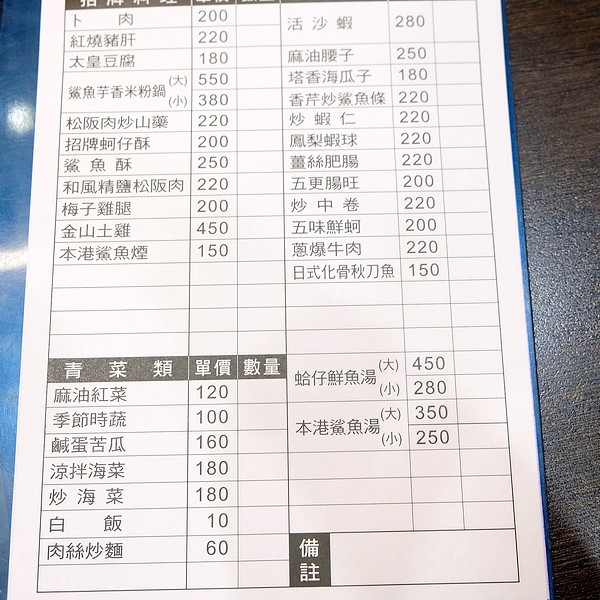 招牌料理 單價 數量
卜肉 200
紅燒豬肝 220
太皇豆腐 180
鯊魚芋香米粉鍋 (大) 550
(小) 380
松阪肉炒山藥 220
招牌蚵仔酥 200
鯊魚酥 250
和風精鹽松阪肉 220
梅子雞腿 200
金山土雞 450
本港鯊魚煙 150
青菜類 單價 數量
麻油紅菜 120
季節時蔬 100
鹹蛋苦瓜 160
涼拌海菜 180
炒海菜 180
白飯 10
肉絲炒麵 60
活沙蝦 280
麻油腰子 250
塔香海瓜子 180
香芹炒鯊魚條 220
炒蝦仁 220
鳳梨蝦球 220
薑絲肥腸 220
五更腸旺 200
炒中卷 220
五味鮮蚵 200
蔥爆牛肉 220
日式化骨秋刀魚 150
蛤仔鮮魚湯 (大) 450
(小) 280
本港鯊魚湯 (大) 350
(小) 250
備註